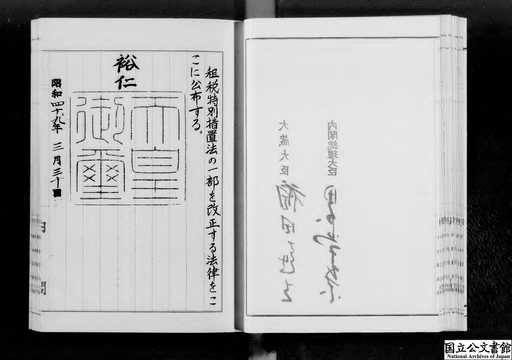 内閣総理大臣
大蔵大臣
租税特別措置法の一部を改正する法律をこ
こに公布する。
裕仁
天皇御璽
昭和四十九年 三月三十
内閣
国立公文書館
National Archives of Japan